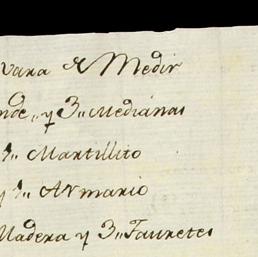 vara de Medir
nde,, y 3,, Medianas
1,, Martillito
y 1,, Armario
Madera y 3,, Tauretes